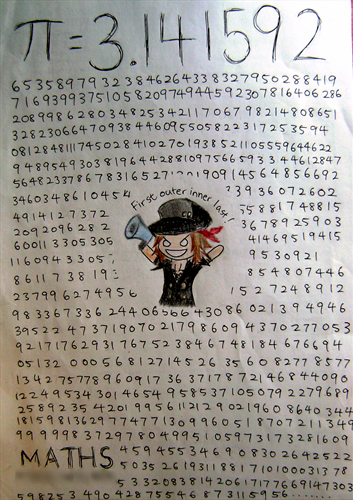 π=3.141592
65358979323846264338327950288419
7169399375105820974944592307816406286
20899862803482534211706798214808651
32823066470938446095505822317253594
08128481117450284102701938521105559644622
9489549303819644288109756659334461284​7
First outer inner last!
346034861045 3936072602
4914127372 5588174881​5
2092096282 3678925903
600113305305 41469519415
1160943305 9530921
86117381 854807446
237996274956 1527248912
9833673362440656643086021394946
39522473719070217986094370277053
92171762931767523846748184676694
0513200056812714526356082778577
134275778960917363717872146844090
1224953430146549585371050792279689
258923542019956112129021960864034​4
181598136297747713099605187072113​49
99999983729780499510597317328160​9
MATHS
45945534690830264252​2
503526193118817101000313​78
5332083814206171776691473​03
598253490428755468731156......